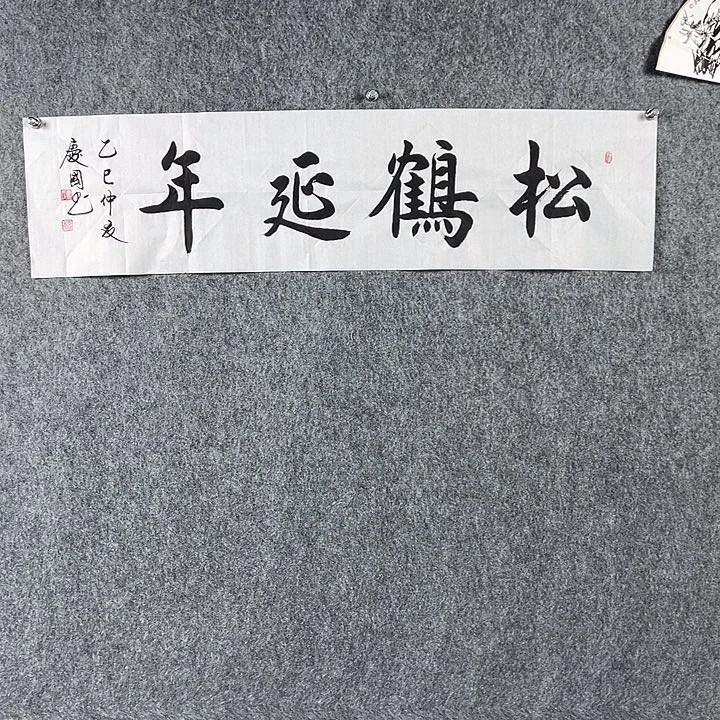 松鶴延年
乙巳仲夏
慶國书